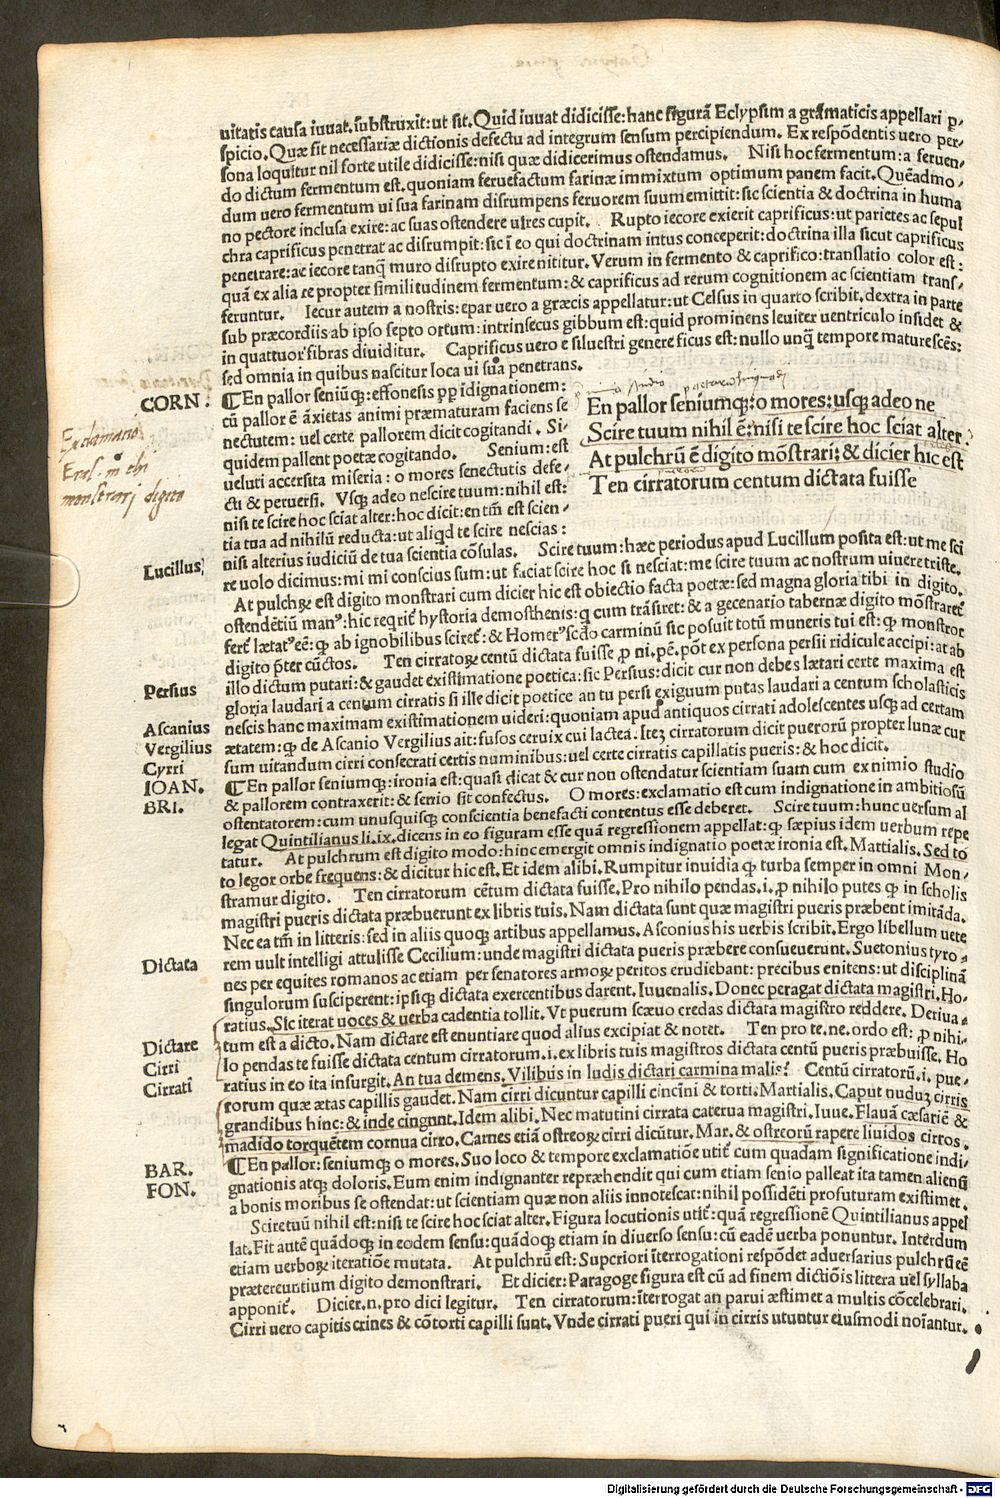 uitatis causa iuuat.substruxit:ut sit.Quid iuuat didicisse:hanc figurā Eclypsim a grāmaticis appellari p̱-
spicio.Quæ sit necessariæ dictionis defectu ad integrum sensum percipiendum. Ex respōdentis uero per-
sona loquitur nil forte utile didicisse:nisi quæ didicerimus ostendamus. Nisi hoc fermentum:a feruen-
do dictum fermentum est.quoniam feruefactum farinæ immixtum optimum panem facit.Quēadmo-
dum uero fermentum ui sua farinam disrumpens feruorem suum emittit:sic scientia & doctrina in huma
no pectore inclusa exire:ac suas ostendere uires cupit. Rupto iecore exierit caprificus:ut parietes ac sepul
chra caprificus penetrat ac disrumpit:sic ī eo qui doctrinam intus conceperit:doctrina illa sicut caprificus
penetrare:ac iecore tanꝗ muro disrupto exire nititur.Verum in fermento & caprifico:translatio color est:
quā ex alia re propter similitudinem fermentum:& caprificus ad rerum cognitionem ac scientiam trans-
feruntur. Iecur autem a nostris:epar uero a græcis appellatur:ut Celsus in quarto scribit.dextra in parte
sub præcordiis ab ipso septo ortum:intrinsecus gibbum est:quid prominens leuiter uentriculo insidet &
in quattuor fibras diuiditur. Caprificus uero e siluestri genere ficus est:nullo unꝗ tempore maturescēs:
sed omnia in quibus nascitur loca ui sua penetrans.
CORN.
¶En pallor seniūqꝫ:effonesis pp̱ idignationem:
cū pallor ē āxietas animi præmaturam faciens se
nectutem:uel certe pallorem dicit cogitandi. Si-
quidem pallent poetæ cogitando. Senium:est
ueluti accersita miseria:o mores senectutis defe-
cti & peruersi. Vsqꝫ adeo nescire tuum:nihil est:
nisi te scire hoc sciat alter:hoc dicit:en tm̄ est scien-
tia tua ad nihilū reducta:ut aliqd te scire nescias:
Exclamatio
digito
En pallor seniumqꝫ:o mores:usqꝫ adeo ne
Scire tuum nihil ē:nisi te scire hoc sciat alter?
At pulchrū ē digito mōstrari:& dicier hic est
Ten cirratorum centum dictata fuisse
Lucillus
nisi alterius iudiciū de tua scientia cōsulas. Scire tuum:hæc periodus apud Lucillum posita est:ut me sci
re uolo dicimus:mi mi conscius sum:ut faciat scire hoc si nesciat:me scire tuum ac nostrum uiuere triste.
At pulchꝝ est digito monstrari cum dicier hic est obiectio facta poetæ:sed magna gloria tibi in digito.
ostendētiū manꝰ:hic reqrit᷑ hystoria demosthenis:q cum trāsiret:& a gecenario tabernæ digito mōstraret᷑
fert᷑ lætatꝰ eē:ꝙ ab ignobilibus sciret᷑:& Homerꝰ scdo carminū sic posuit totū muneris tui est:ꝙ monstror
digito p̄ter cūctos. Ten cirratoꝝ centū dictata fuisse ꝓ ni.pē.pōt ex persona persii ridicule accipi:at ab
Persius
illo dictum putari:& gaudet existimatione poetica:sic Persius:dicit cur non debes lætari certe maxima est
gloria laudari a centum cirratis si ille dicit poetice an tu persi exiguum putas laudari a centum scholasticis
Ascanius
nescis hanc maximam existimationem uideri:quoniam apud antiquos cirrati adolescentes usqꝫ ad certam
Vergilius
ætatem:ꝙ de Ascanio Vergilius ait:fusos ceruix cui lactea.Iteꝫ cirratorum dicit puerorū propter lunæ cur
Cyrri
sum uitandum cirri consecrati certis numinibus:uel certe cirratis capillatis pueris:& hoc dicit.
IOAN.
BRI.
¶En pallor seniumqꝫ:ironia est:quasi dicat & cur non ostendatur scientiam suam cum ex nimio studio
& pallorem contraxerit:& senio sit confectus. O mores:exclamatio est cum indignatione in ambitiosū
ostentatorem:cum unusquisqꝫ conscientia benefacti contentus esse deberet. Scire tuum:hunc uersum al
legat Quintilianus li.ix.dicens in eo figuram esse quā regressionem appellat:ꝙ sæpius idem uerbum repe
tatur. At pulchrum est digito modo:hinc emergit omnis indignatio poetæ ironia est.Martialis.Sed to
to legor orbe frequens:& dicitur hic est.Et idem alibi.Rumpitur inuidia ꝙ turba semper in omni Mon-
stramur digito. Ten cirratorum cētum dictata fuisse.Pro nihilo pendas.i.ꝓ nihilo putes ꝙ in scholis
magistri pueris dictata præbuerunt ex libris tuis.Nam dictata sunt quæ magistri pueris præbent imitāda.
Nec ea tm̄ in litteris:sed in aliis quoqꝫ artibus appellamus.Asconius his uerbis scribit.Ergo libellum uete
Dictata
rem uult intelligi attulisse Cecilium:unde magistri dictata pueris præbere consueuerunt.Suetonius tyro-
nes per equites romanos ac etiam per senatores armoꝝ peritos erudiebant:precibus enitens:ut disciplinā
singulorum susciperent:ipsiqꝫ dictata exercentibus darent.Iuuenalis.Donec peragat dictata magistri.Ho-
ratius.Sic iterat uoces & uerba cadentia tollit.Vt puerum scæuo credas dictata magistro reddere. Deriua-
Dictare
tum est a dicto.Nam dictare est enuntiare quod alius excipiat & notet. Ten pro te.ne.ordo est:ꝓ nihi-
Cirri
lo pendas te fuisse dictata centum cirratorum.i.ex libris tuis magistros dictata centū pueris præbuisse.Ho
Cirrati
ratius in eo ita insurgit.An tua demens.Vilibus in ludis dictari carmina malis? Centū cirratorū.i.pue-
rorum quæ ætas capillis gaudet.Nam cirri dicuntur capilli cincini & torti.Martialis.Caput nuduꝫ cirris
grandibus hinc:& inde cingunt.Idem alibi.Nec matutini cirrata caterua magistri.Iuue.Flauā cæsariē &
madido torquētem cornua cirro.Carnes etiā ostreoꝝ cirri dicūtur.Mar.& ostreorū rapere liuidos cirros.
BAR.
FON.
¶En pallor:seniumqꝫ o mores.Suo loco & tempore exclamatiōe utit᷑ cum quadam significatione indi-
gnationis atqꝫ doloris.Eum enim indignanter repræhendit qui cum etiam senio palleat ita tamen aliensū
a bonis moribus se ostendat:ut scientiam quæ non aliis innotescat:nihil possidēti profuturam existimet.
Scire tuū nihil est:nisi te scire hoc sciat alter.Figura locutionis utit᷑:quā regressionē Quintilianus appel
lat.Fit autē quādoqꝫ in eodem sensu:quādoqꝫ etiam in diuerso sensu:cū eadē uerba ponuntur. Interdum
etiam uerboꝝ iteratiōe mutata. At pulchrū est:Superiori īterrogationi respōdet aduersarius pulchrū eē
prætereuntium digito demonstrari. Et dicier:Paragoge figura est cū ad finem dictiōis littera uel syllaba
apponit᷑. Dicier.n.pro dici legitur. Ten cirratorum:īterrogat an parui æstimet a multis cōcelebrari.
Cirri uero capitis crines & cōtorti capilli sunt.Vnde cirrati pueri qui in cirris utuntur eiusmodi noīantur.
Digitalisierung gefördert durch die Deutsche Forschungsgemeinschaft - DFG